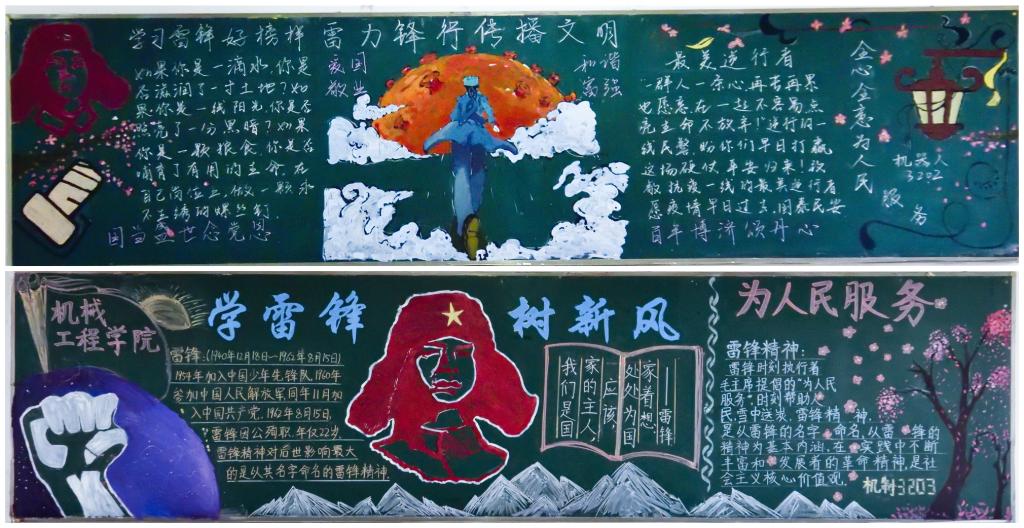 学习雷锋好榜样
如果你是一滴水,你是
否滋润了一寸土地?如
果你是一线阳光,你是否
照亮了一分黑暗?如果
你是一颗粮食,你是否
哺育了有用的生命.在
自己岗位上做一颗永
不生锈的螺丝钉
国当盛世念党恩
雷力锋行传播文明
爱国
敬业
和谐
富强
最美逆行者
一群人一条心,再苦再累
也愿意在一起不容易点
亮生命不放弃!逆行的一
线民警,盼你们早日打赢
这场硬仗平安归来!致
敬抗疫一线的最美逆行者
愿疫情早日过去,国泰民安
百年博济颂丹心
全心全意为人民
服务
机器人
3202
机械
工程学院
学雷锋 树新风
雷锋:(1940年12月18日—1962年8月15日)
1954年加入中国少年先锋队,1960年
参加中国人民解放军,同年11月加
入中国共产党,1962年8月15日,
雷锋因公殉职,年仅22岁.
雷锋精神对后世影响最大
的是从其名字命名的雷锋精神.
我们是国
家的主人,
一应该
处处为国
家着想.
——雷锋
为人民服务
雷锋精神:
雷锋时刻执行着
毛主席提倡的"为人民
服务",时刻帮助人
民雪中送炭,雷锋精神,
是从雷锋的名字命名,从雷锋的
精神为基本内涵,在实践中不断
丰富和发展着的革命精神,是社
会主义核心价值观.
机制3203